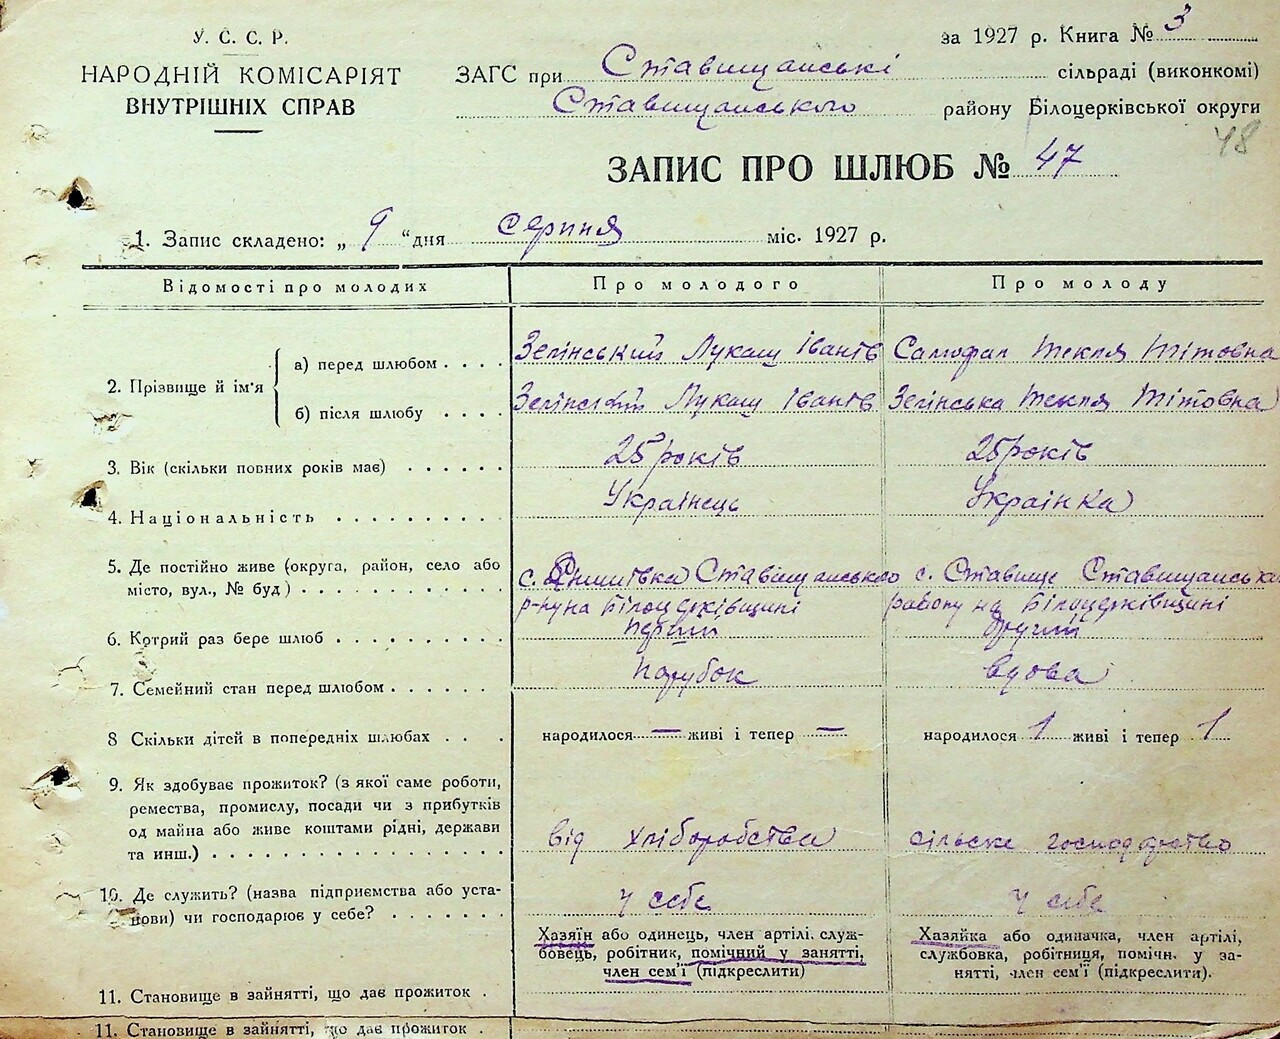 У. С. С. Р.
НАРОДНІЙ КОМІСАРІЯТ
ВНУТРІШНІХ СПРАВ
за 1927 р. Книга № 3
ЗАГС при Ставищанські сільраді (виконкомі)
Ставищанського району Білоцерківської округи
48
ЗАПИС ПРО ШЛЮБ № 47
1. Запис складено: „ 9 “ дня серпня міс. 1927 р.
Відомості про молодих Про молодого Про молоду
2. Прізвище й ім'я
а) перед шлюбом . . . . Зелінський Лукаш Іванів Самофал Текля Тітовна
б) після шлюбу . . . . Зелінский Лукаш Іванів Зелінська Текля Тітовна
3. Вік (скільки повних років має) . . . . . . 25 років 25 років
4. Національність . . . . . . . . . . Українець Українка
5. Де постійно живе (округа, район, село або
місто, вул., № буд) . . . . . . . . . . . .
с. Ставищанського
р-ну на Білоцерківщині
с. Ставище Ставищанська
району на Білоцерківщині
6. Котрий раз бере шлюб . . . . . . . . . . перший другий
7. Семейний стан перед шлюбом . . . . . . парубок вдова
8 Скільки дітей в попередніх шлюбах . . . народилося — живі і тепер — народилося 1 живі і тепер 1
9. Як здобуває прожиток? (з якої саме роботи,
ремества, промислу, посади чи з прибутків
од майна або живе коштами рідні, держави
та инш.) . . . . . . . . . . . . . . . . від хліборобства сільске господарство
10. Де служить? (назва підприємства або уста-
нови) чи господарює у себе? . . . . . . . у себе у себе
Хазяїн або одинець, член артілі. служ-
бовець, робітник, помічний у занятті,
член сем'ї (підкреслити)
Хазяйка або одиначка, член артілі,
службовка, робітниця, помічн. у за-
нятті, член сем'ї (підкреслити).
11. Становище в зайнятті, що дає прожиток .
11. Становище в зайнятті, що дає прожиток .